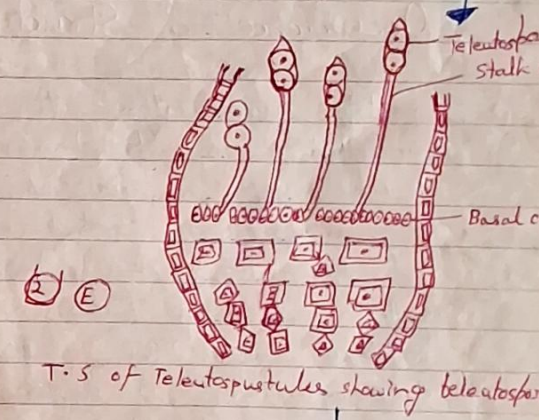 Teleutospo
Stalk
Basal c
2 E
T.S of Teleutospustules showing teleutospo